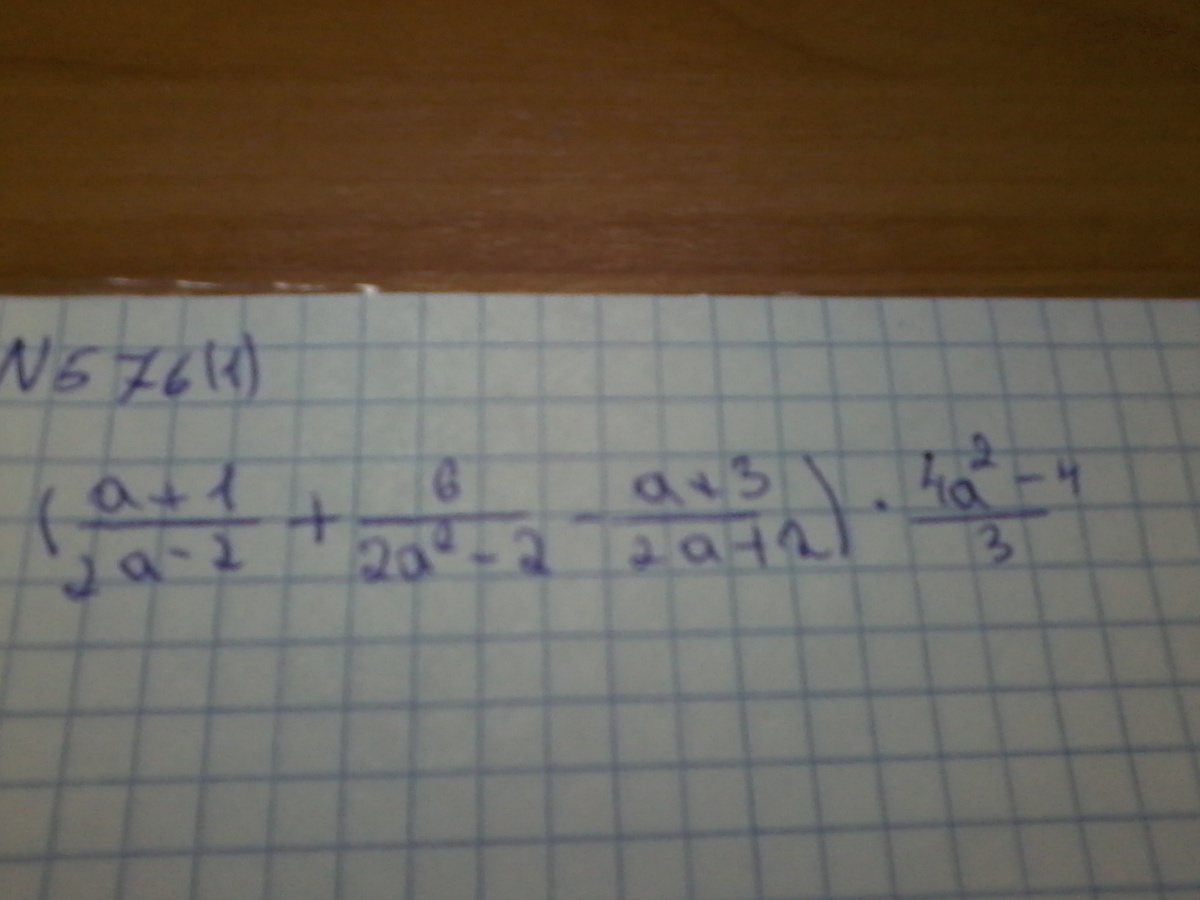 N576(1)
(\frac{a+1}{2a-2} + \frac{6}{2a^2-2} - \frac{a+3}{2a+2}) \cdot \frac{4a^2-4}{3}